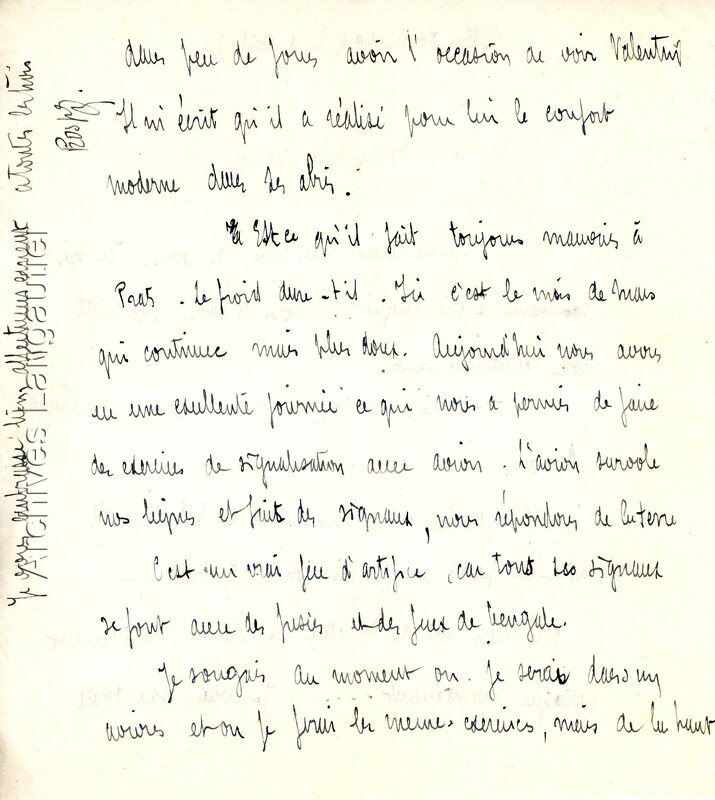 dans peu de jours avoir l'occasion de voir Valentin
Il m'écrit qu'il a réalisé pour lui le confort
moderne dans ses abris.
Est ce qu'il fait toujours mauvais à
Prats. Le froid dure-t-il. Ici c'est le mois de Mars
qui continue mais plus doux. Aujourd'hui nous avons
eu une excellente journée ce qui nous a permis de faire
des exercices de signalisation avec avion. L'avion survole
nos lignes et fait des signaux, nous répondons de la terre
C'est un vrai feu d'artifice, car tous ses signaux
se font avec des fusées et des feux de bengale.
Je songais au moment ou je serais dans un
avions et ou je ferai les meme exercices, mais de la haut
Je vous embrasse bien affectueusement a toutes les trois
Archives Langautier